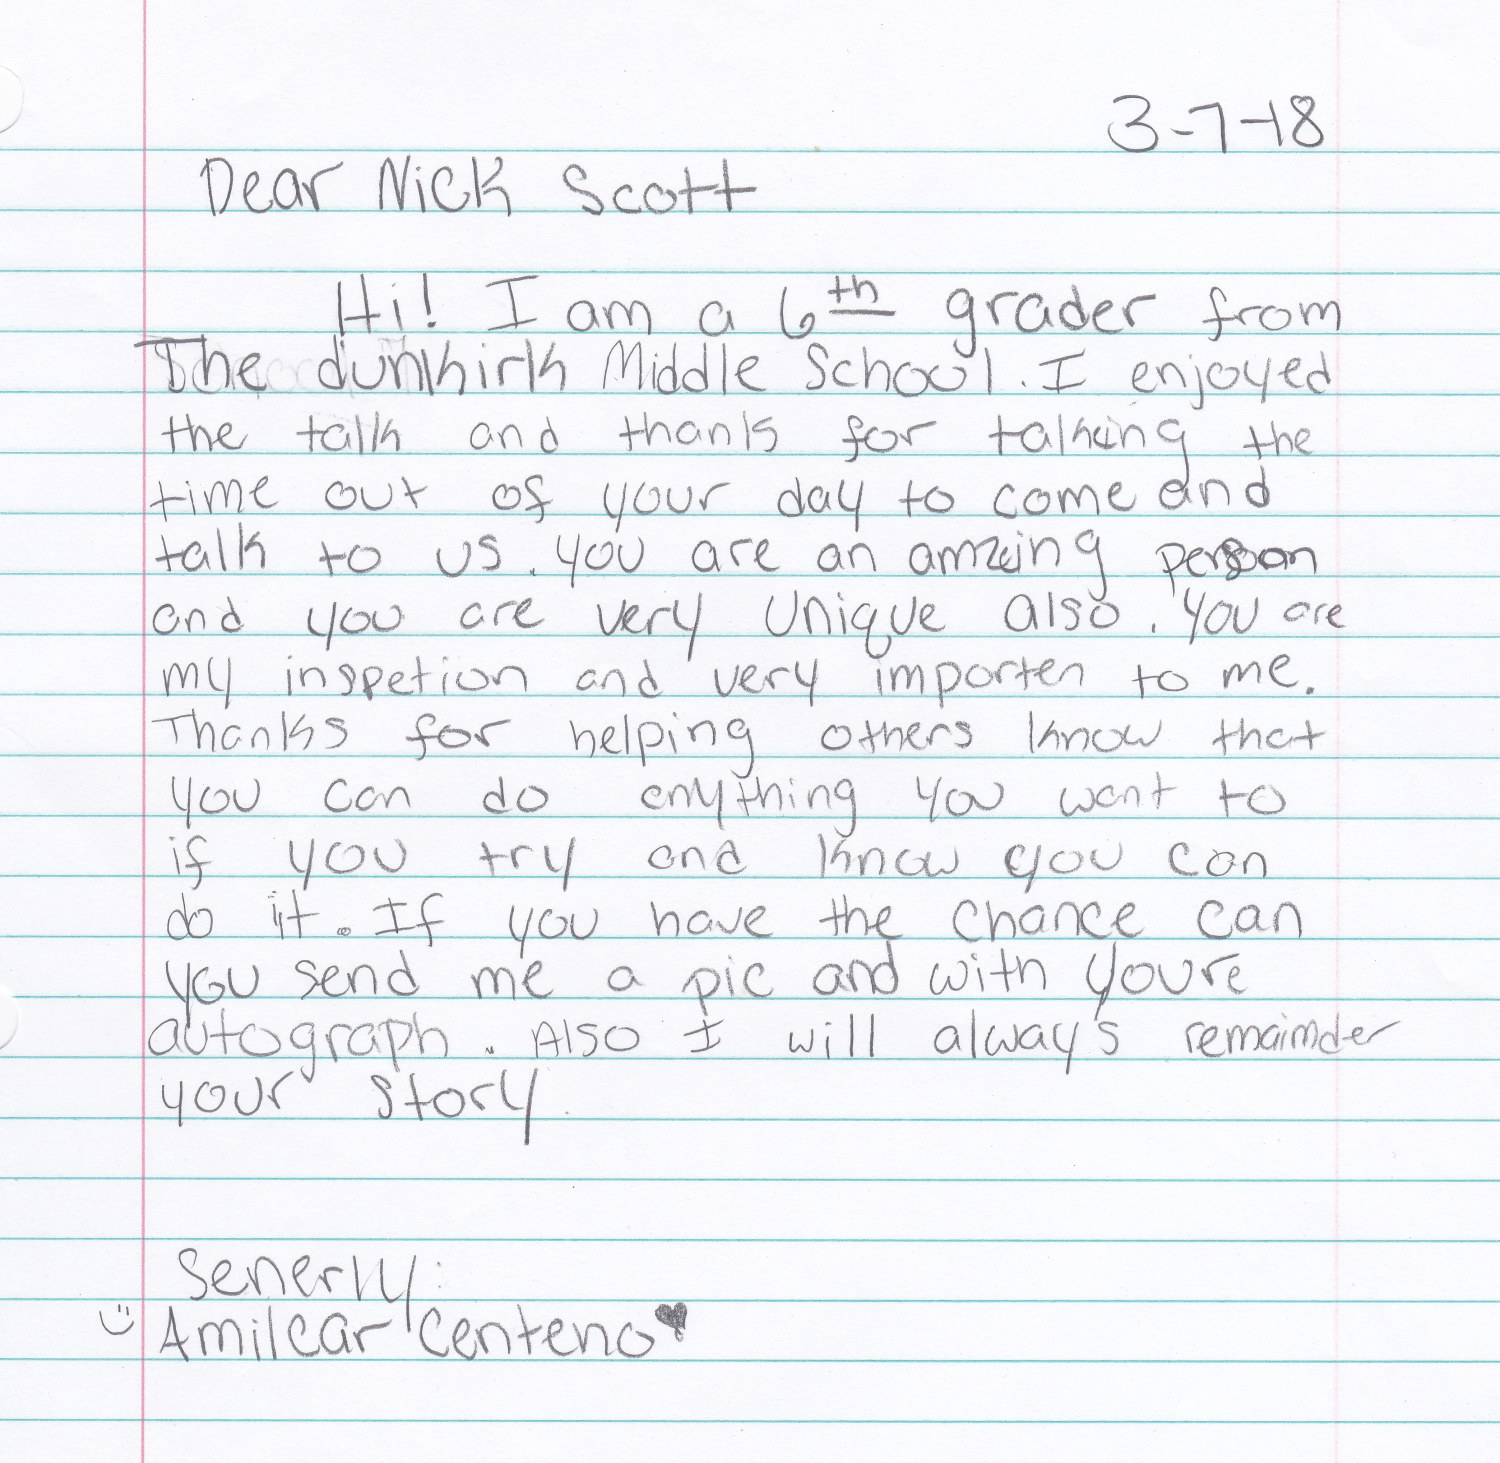 3-7-18
Dear Nick Scott
Hi! I am a 6th grader from
The dunkirk Middle School. I enjoyed
the talk and thanks for talking the
time out of your day to come and
talk to us. you are an amzing person
and you are very unique also. You are
my inspetion and very importen to me.
Thanks for helping others know that
you can do anything you want to
if you try and know you can
do it. If you have the chance can
you send me a pic and with youre
autograph. Also I will always remaimder
your story
Senerly:
Amilcar Centeno